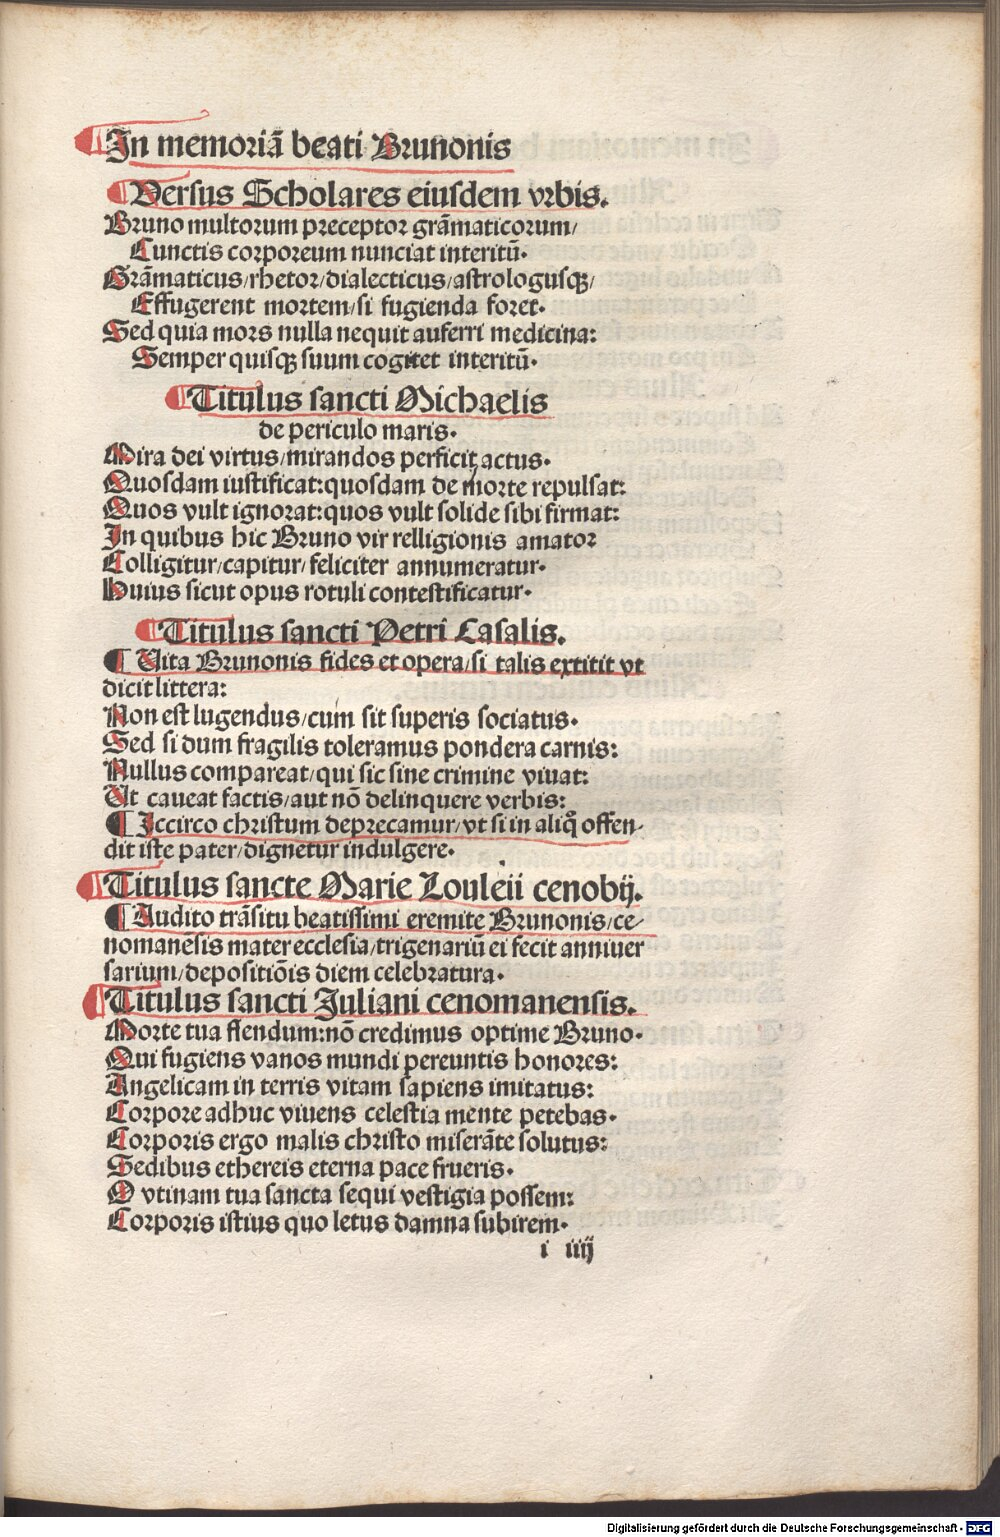 In memoriā beati Brunonis
Versus Scholares eiusdem vrbis.
Bruno multorum preceptor grāmaticorum/
Cunctis corporeum nunciat interitū.
Grāmaticus/rhetor/dialecticus/astrologusqꝫ/
Effugerent mortem/si fugienda foret.
Sed quia mors nulla nequit auferri medicina:
Semper quisqꝫ suum cogitet interitū.
Titulus sancti Michaelis
de periculo maris.
Mira dei virtus/mirandos perficit actus.
Quosdam iustificat:quosdam de morte repulsat:
Quos vult ignorat:quos vult solide sibi firmat:
In quibus hic Bruno vir relligionis amator
Colligitur/capitur/feliciter annumeratur.
Huius sicut opus rotuli contestificatur.
Titulus sancti Petri Casalis.
¶ Vita Brunonis fides et opera/si talis extitit vt
dicit littera:
Non est lugendus/cum sit superis sociatus.
Sed si dum fragilis toleramus pondera carnis:
Nullus compareat/qui sic sine crimine viuat:
Ut caueat factis/aut nō delinquere verbis:
¶ Iccirco christum deprecamur/vt si in aliq̄ offen-
dit iste pater/dignetur indulgere.
Titulus sancte Marie Louleii cenobij.
¶ Audito trāsitu beatissimi eremite Brunonis/ce/
nomanēsis mater ecclesia/trigenariū ei fecit anniuer
sarium/depositiōis diem celebratura.
Titulus sancti Juliani cenomanensis.
Morte tua flendum:nō credimus optime Bruno.
Qui fugiens vanos mundi pereuntis honores:
Angelicam in terris vitam sapiens imitatus:
Corpore adhuc viuens celestia mente petebas.
Corporis ergo malis christo miserāte solutus:
Sedibus ethereis eterna pace frueris.
O vtinam tua sancta sequi vestigia possem:
Corporis istius quo letus damna subirem.
i iiij
Digitalisierung gefördert durch die Deutsche Forschungsgemeinschaft - DFG